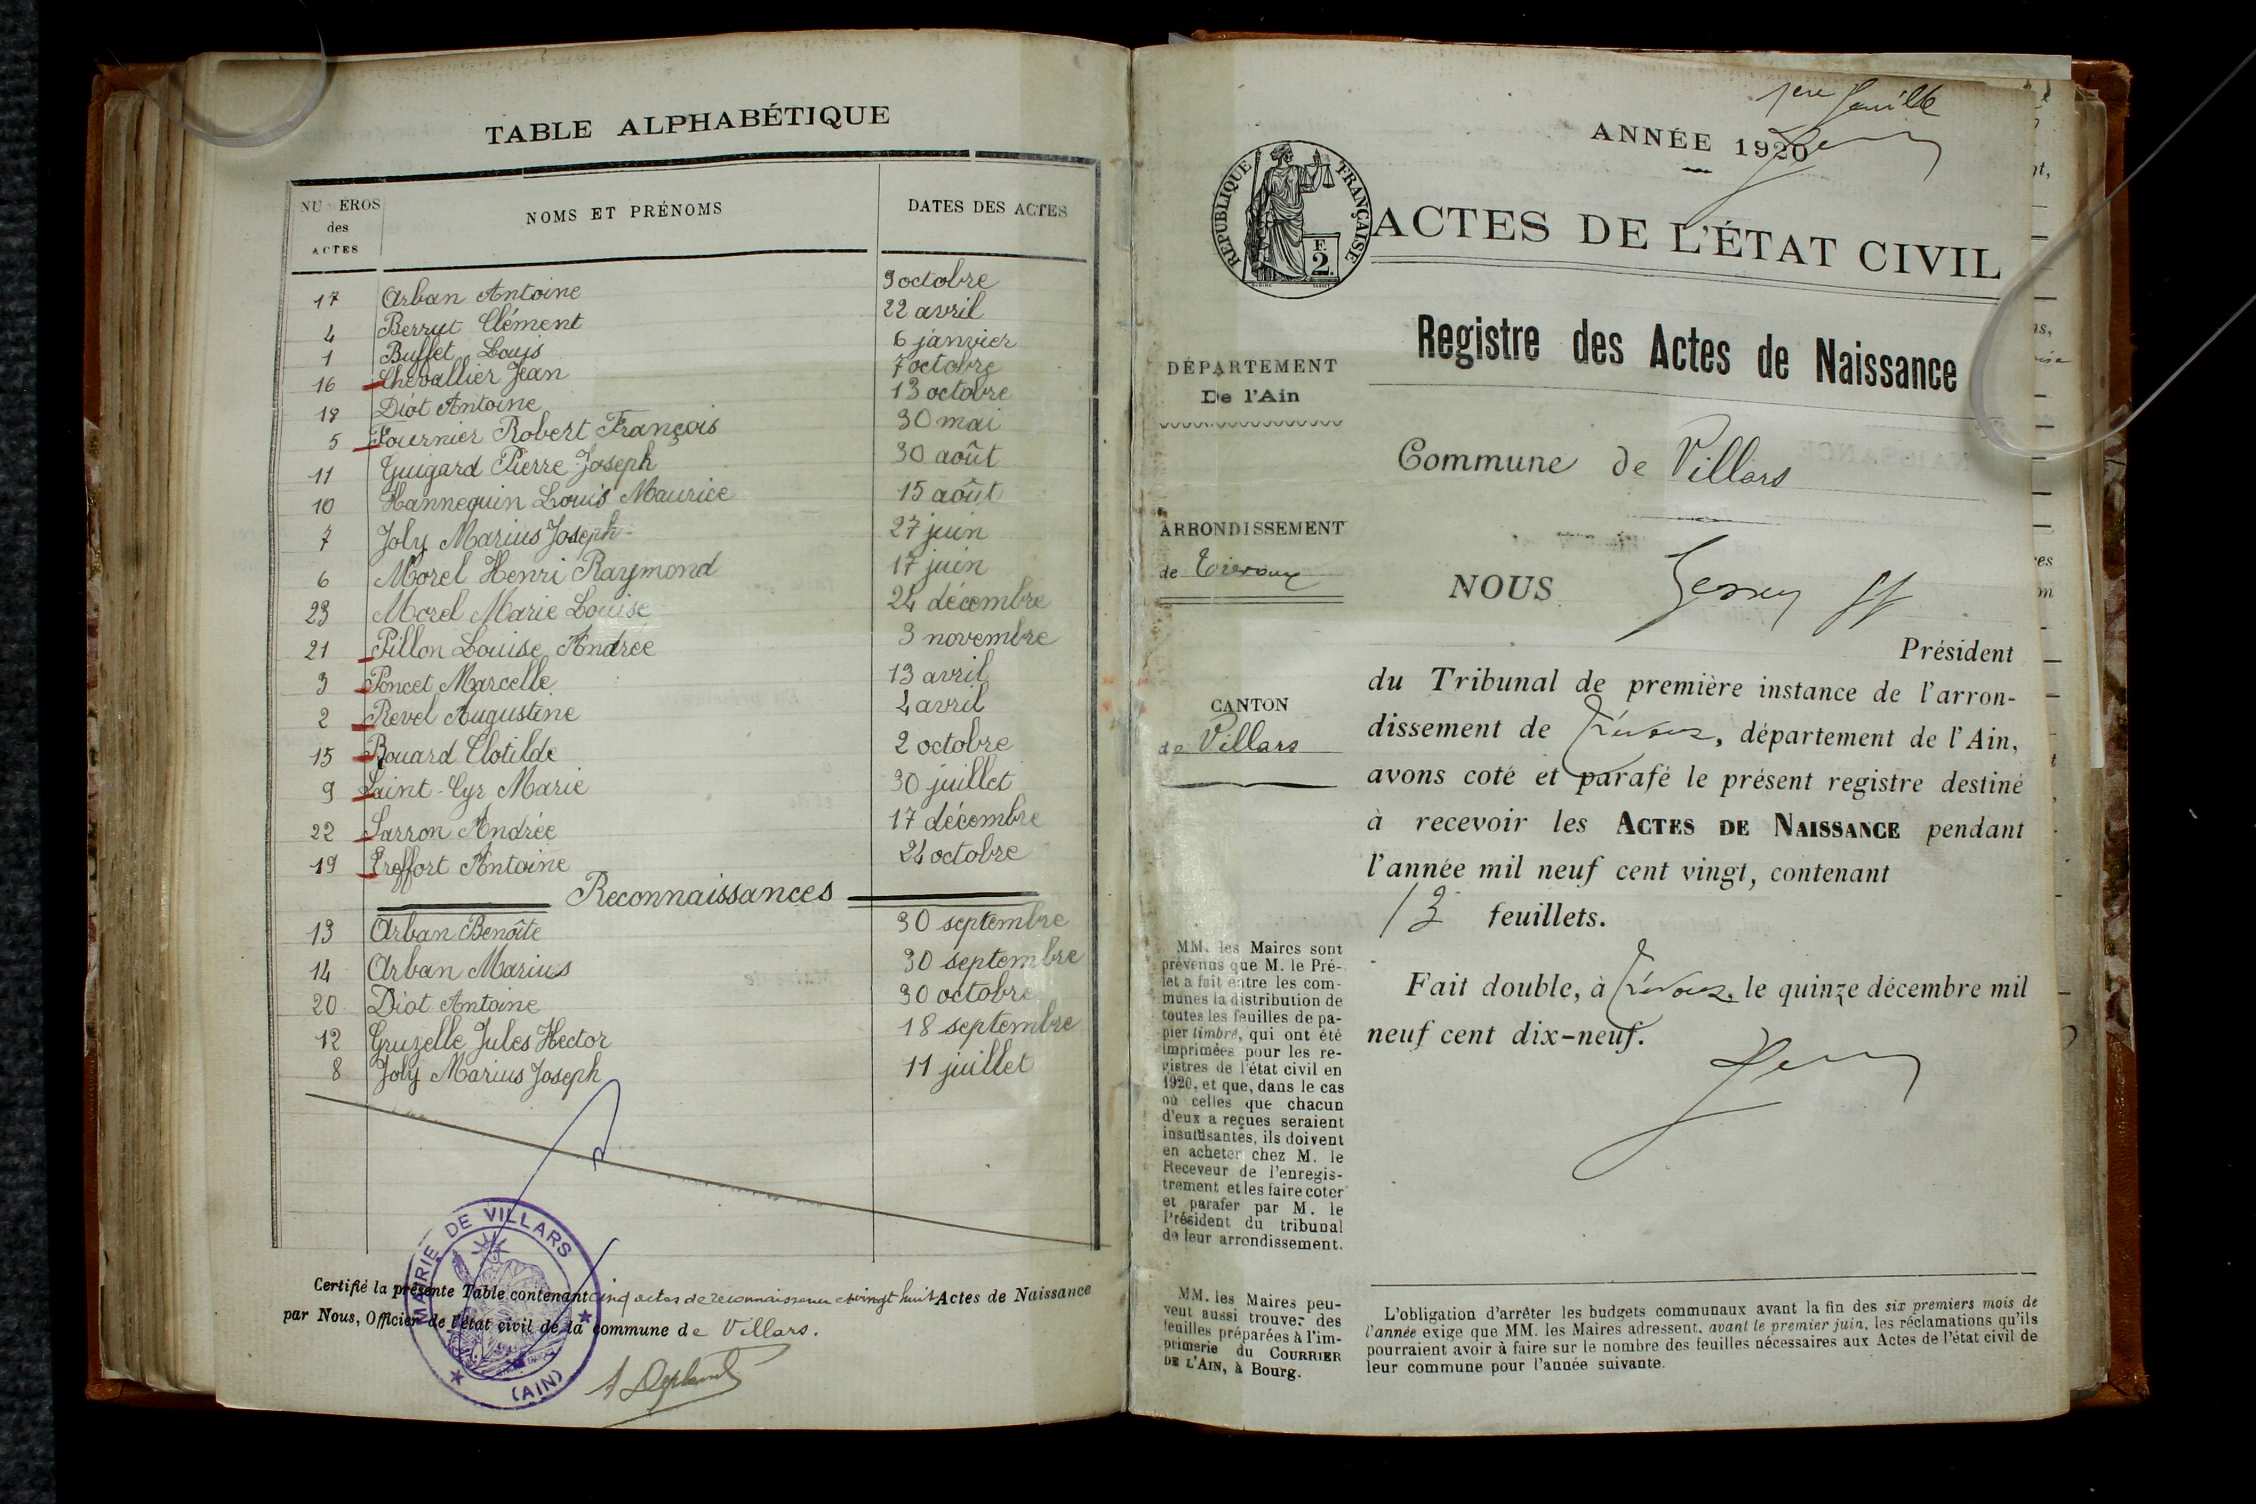 TABLE ALPHABÉTIQUE
NU EROS des ACTES
NOMS ET PRÉNOMS
DATES DES ACTES
17 Arban Antoine 9 octobre
4 Berrut Clément 22 avril
1 Buffet Louis 6 janvier
16 Chevallier Jean 7 octobre
18 Diot Antoine 13 octobre
5 Fournier Robert François 30 mai
11 Guigard Pierre Joseph 30 août
10 Hannequin Louis Maurice 15 août
7 Joly Marius Joseph 27 juin
6 Morel Henri Raymond 17 juin
23 Morel Marie Louise 24 décembre
21 Pillon Louise Andrée 3 novembre
3 Poncet Marcelle 13 avril
2 Revel Augustine 4 avril
15 Rouard Clotilde 2 octobre
9 Saint-Cyr Marie 30 juillet
22 Sarron Andrée 17 décembre
19 Treffort Antoine 24 octobre
Reconnaissances
13 Arban Benoîte 30 septembre
14 Arban Marius 30 septembre
20 Diot Antoine 30 octobre
12 Gruzelle Jules Hector 18 septembre
8 Joly Marius Joseph 11 juillet
Certifié la présente Table contenant cinq actes de reconnaissance et vingt huit Actes de Naissance
par Nous, Officier de l'état civil de la commune de Villars.
MAIRIE DE VILLARS
(AIN)
1ere feuille
ANNÉE 1920
RÉPUBLIQUE FRANÇAISE
F.
2.
ACTES DE L'ÉTAT CIVIL
Registre des Actes de Naissance
DÉPARTEMENT
De l'Ain
Commune de Villars
ARRONDISSEMENT
de Trévoux
NOUS
Président
CANTON
de Villars
du Tribunal de première instance de l'arron-
dissement de Trévoux, département de l'Ain,
avons coté et parafé le présent registre destiné
à recevoir les ACTES DE NAISSANCE pendant
l'année mil neuf cent vingt, contenant
13 feuillets.
Fait double, à Trévoux, le quinze décembre mil
neuf cent dix-neuf.
MM. les Maires sont
prévenus que M. le Pré-
fet a fait entre les com-
munes la distribution de
toutes les feuilles de pa-
pier timbré, qui ont été
imprimées pour les re-
gistres de l'état civil en
1920, et que, dans le cas
où celles que chacun
d'eux a reçues seraient
insuffisantes, ils doivent
en acheter chez M. le
Receveur de l'enregis-
trement et les faire coter
et parafer par M. le
Président du tribunal
de leur arrondissement.
MM. les Maires peu-
vent aussi trouver des
feuilles préparées à l'im-
primerie du COURRIER
DE L'AIN, à Bourg.
L'obligation d'arrêter les budgets communaux avant la fin des six premiers mois de
l'année exige que MM. les Maires adressent, avant le premier juin, les réclamations qu'ils
pourraient avoir à faire sur le nombre des feuilles nécessaires aux Actes de l'état civil de
leur commune pour l'année suivante.